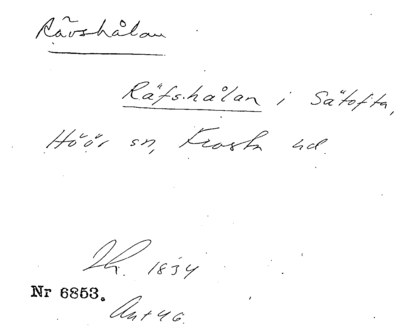 Rävshålan
Räfshålan i Sätofta,
Höör sn, Frosta hd.
1834
Nr 6853.
Ant 46